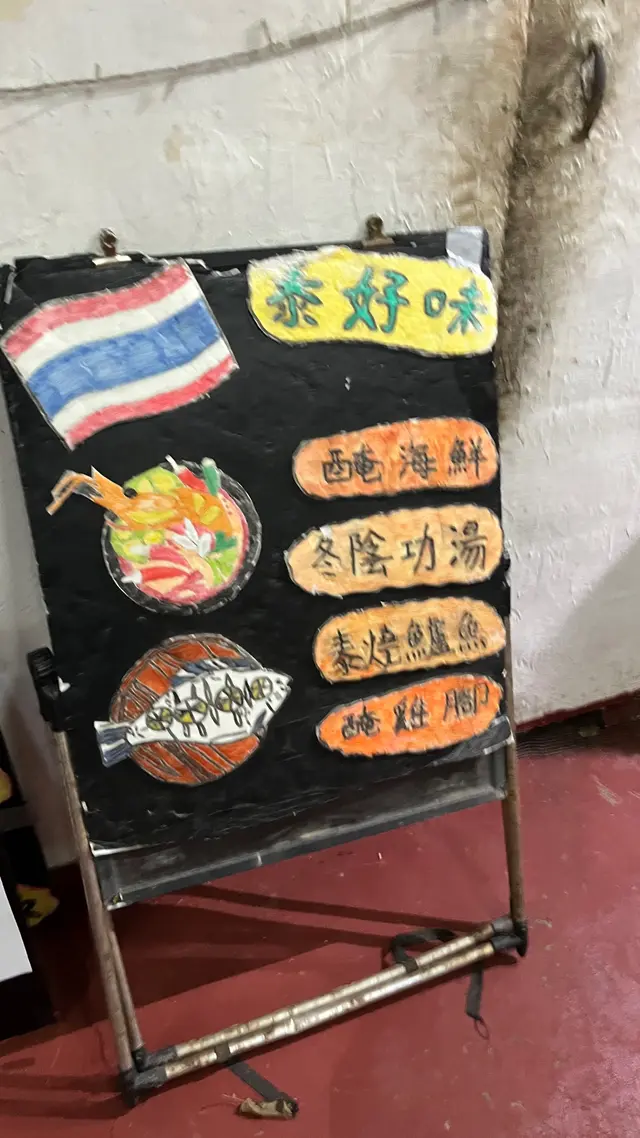 泰好味
醃海鮮
冬陰功湯
泰燒鱸魚
醃雞腳